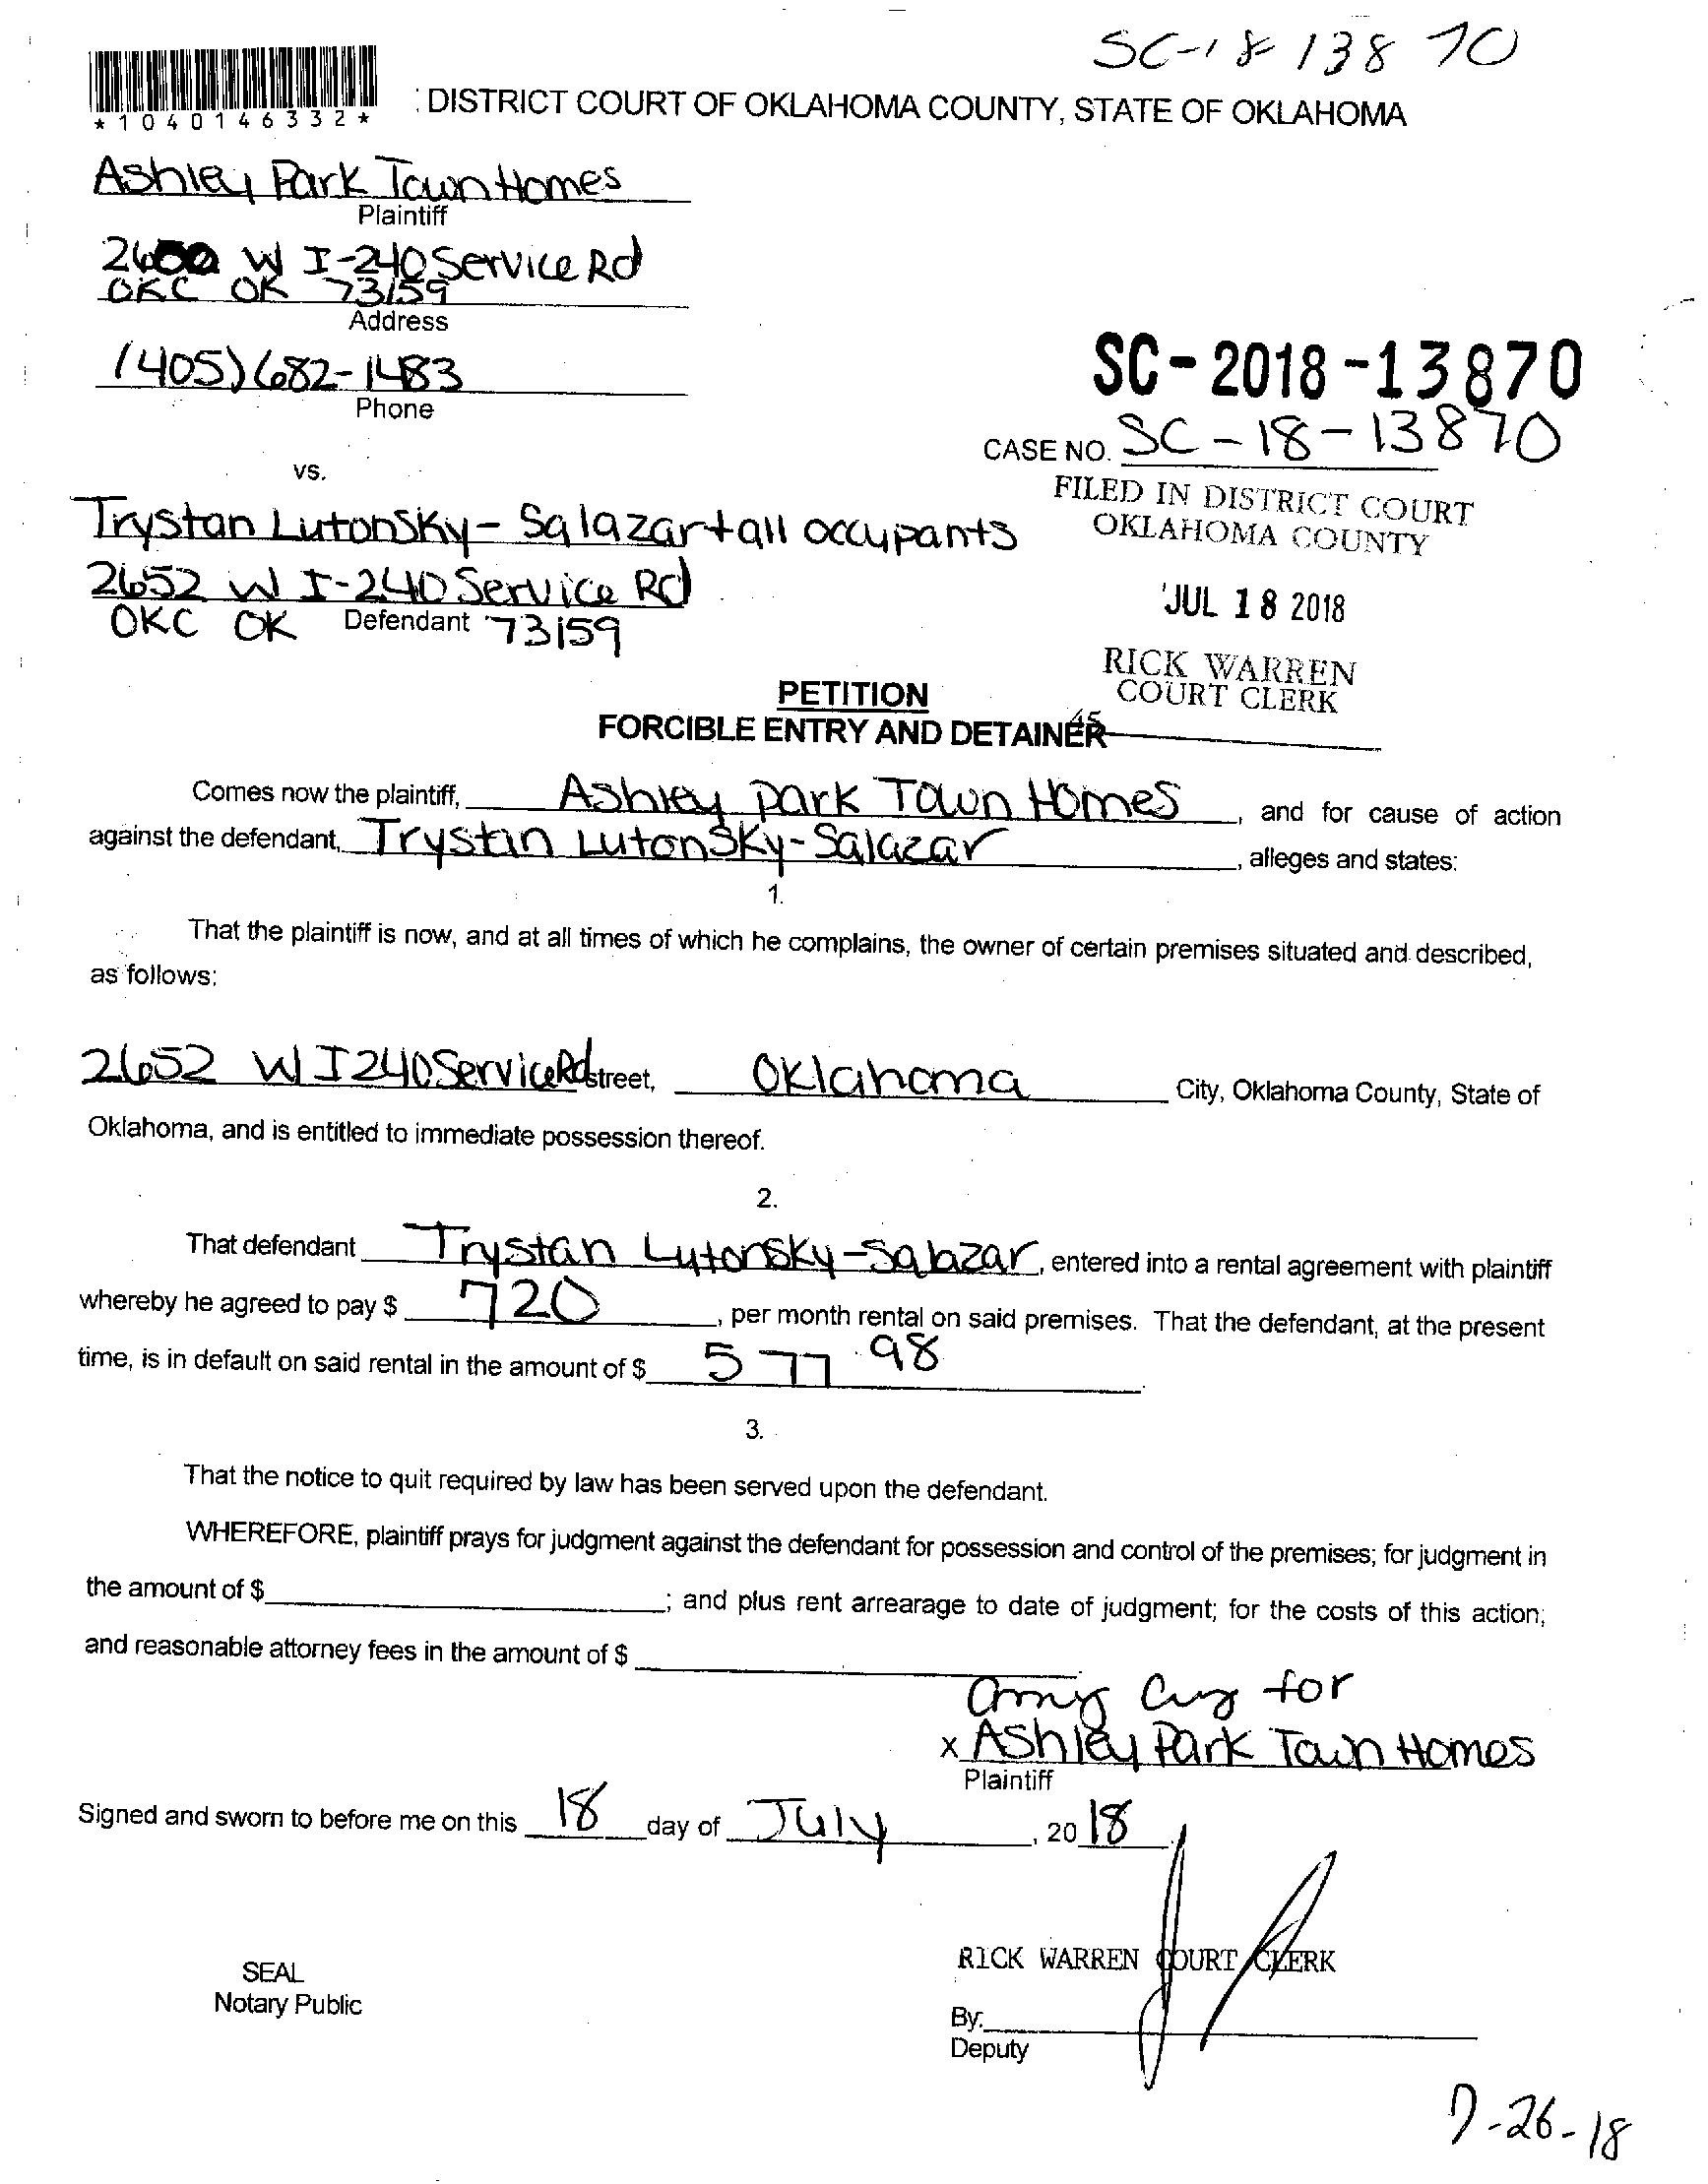 SC-18 13870
*1040146332*
: DISTRICT COURT OF OKLAHOMA COUNTY, STATE OF OKLAHOMA
Ashley Park Town Homes
Plaintiff
W I-240 Service Rd
OKC OK 73159
Address
(405) 682-1483
Phone
SC-2018-13870
CASE NO. SC-18-13870
vs.
FILED IN DISTRICT COURT
OKLAHOMA COUNTY
Trystan Lutonsky-Salazar + all occupants
2652 W I-240 Service Rd
JUL 18 2018
OKC OK Defendant 73159
RICK WARREN
COURT CLERK
PETITION
45
FORCIBLE ENTRY AND DETAINER
Comes now the plaintiff, Ashley Park Town Homes, and for cause of action
against the defendant, Trystan Lutonsky-Salazar, alleges and states:
1.
That the plaintiff is now, and at all times of which he complains, the owner of certain premises situated and described,
as follows:
2652 W I 240 Service Rd street, Oklahoma City, Oklahoma County, State of
Oklahoma, and is entitled to immediate possession thereof.
2.
That defendant Trystan Lutonsky-Salazar, entered into a rental agreement with plaintiff
whereby he agreed to pay $ 720, per month rental on said premises. That the defendant, at the present
time, is in default on said rental in the amount of $ 577.98
3.
That the notice to quit required by law has been served upon the defendant.
WHEREFORE, plaintiff prays for judgment against the defendant for possession and control of the premises; for judgment in
the amount of $ ; and plus rent arrearage to date of judgment; for the costs of this action;
and reasonable attorney fees in the amount of $
Amy for
x Ashley Park Town Homes
Plaintiff
Signed and sworn to before me on this 18 day of July, 2018
RICK WARREN COURT CLERK
SEAL
Notary Public
By:
Deputy
7-26-18